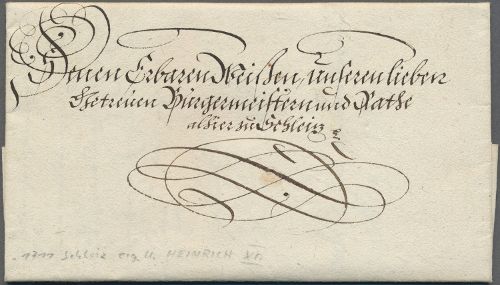 Denen Erbaren Weißen, unseren lieben
Getreuen Bürgermeistern und Rathe
alhier zu Schleiz
1711 Schleiz eig. U. HEINRICH XI.